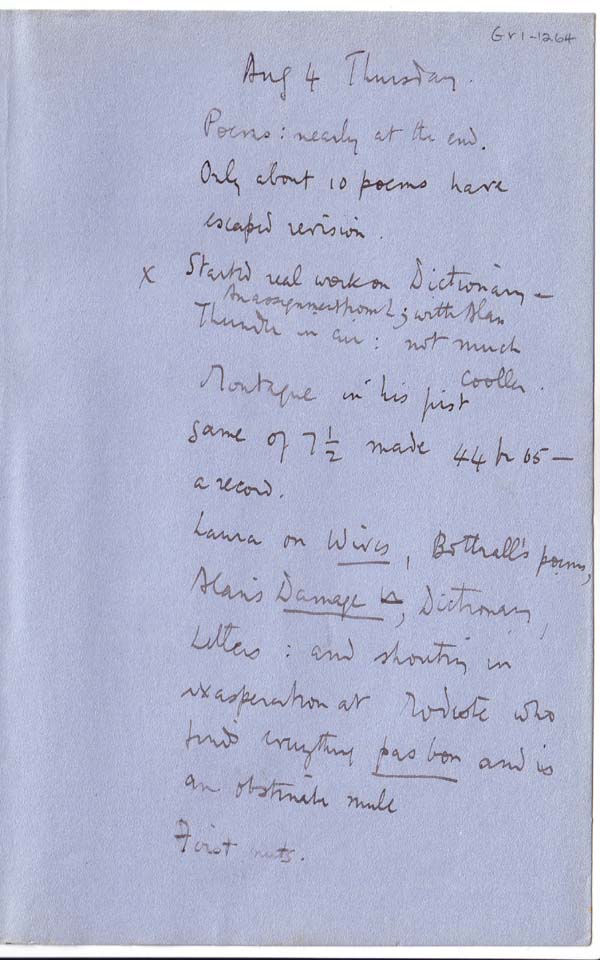 Gr1-1264
Aug 4 Thursday.
Poems: nearly at the end.
Only about 10 poems have
escaped revision.
x Started real work on Dictionary –
An assignment from L; with Alan
Thunder in air: not much
cooler.
Montague in his first
game of 7½ made 44 for 65 –
a record.
Laura on Wives, Bottrall's poems,
Alan's Damage, Dictionary,
Letters: and shouting in
exasperation at Modeste who
finds everything pas bon and is
an obstinate mule
First nuts.